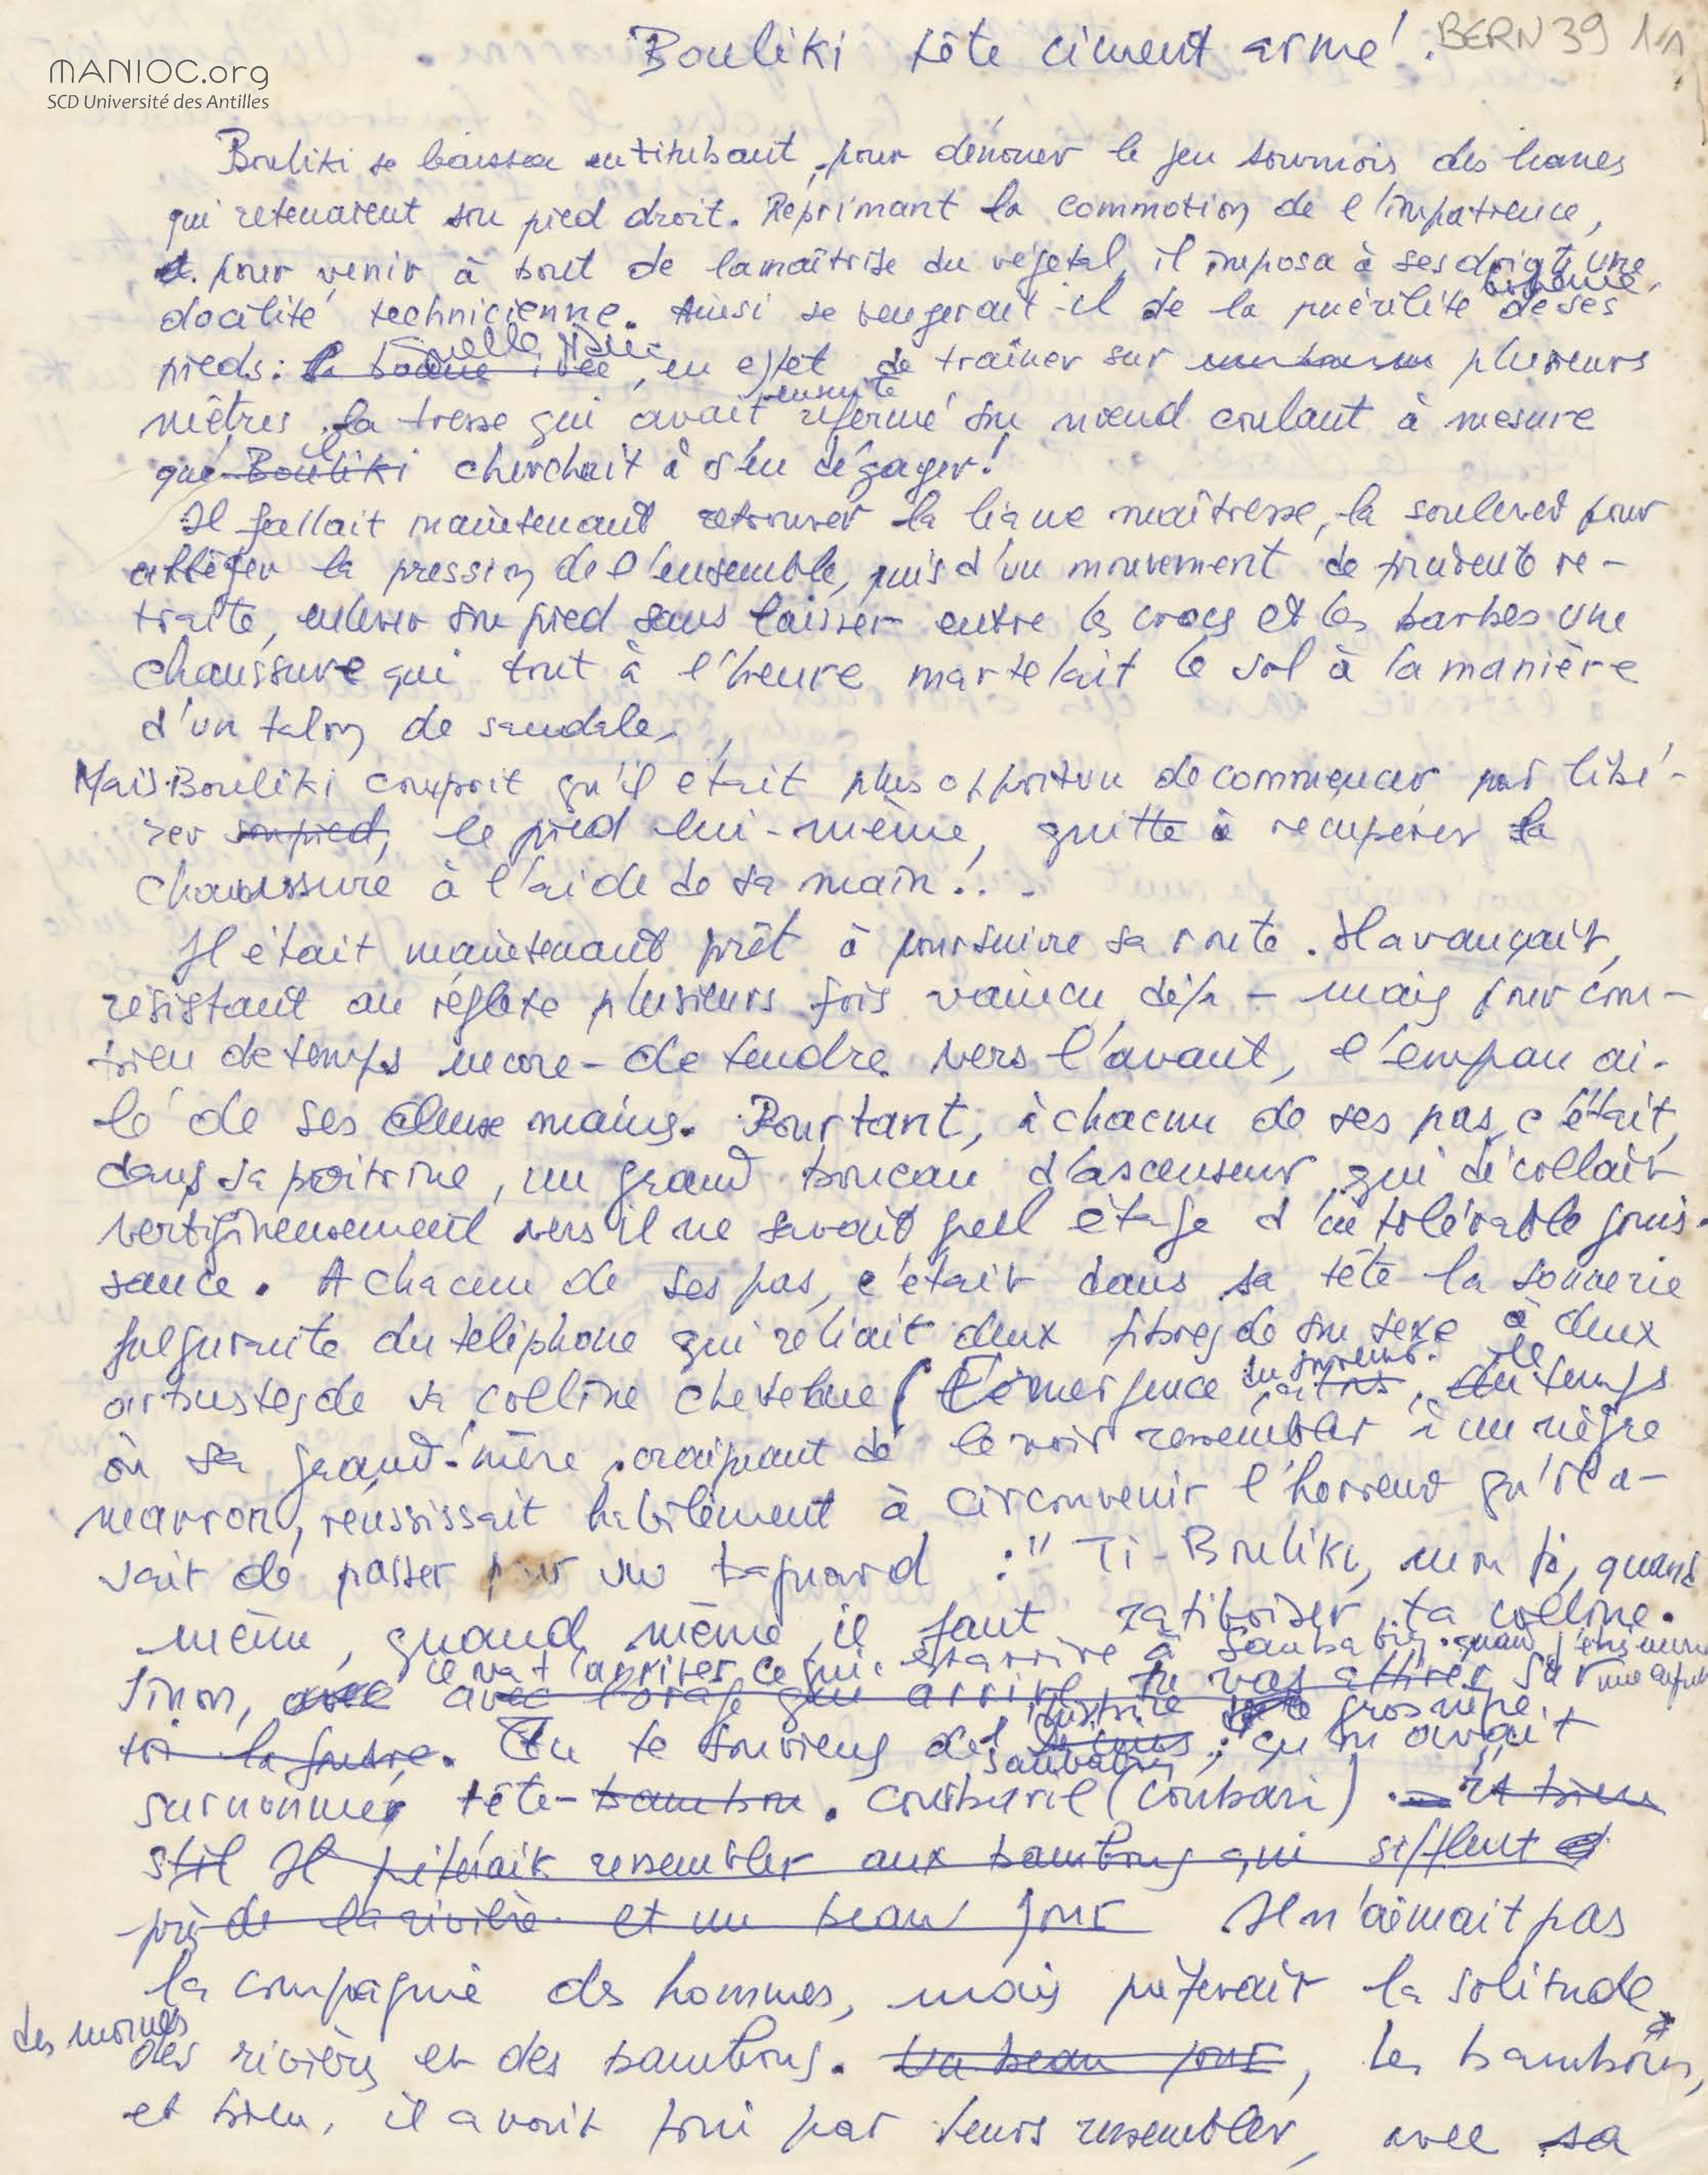 Bouliki tête ciment armé! BERN 39 1/1
MANIOC.org
SCD Université des Antilles
Bouliki se baissa en titubant, pour dénouer le jeu sournois des lianes
qui retenaient son pied droit. Réprimant la commotion de l'impatience,
et pour venir à bout de la maîtrise du végétal, il imposa à ses doigts une
docilité technicienne. Ainsi se vengerait-il de la puérilité de ses
pieds: la bonne idée quelle idée, en effet de traîner sur plusieurs
mètres la tresse qui avait ensuite refermé son nœud coulant à mesure
que Bouliki il cherchait à s'en dégager!
Il fallait maintenant retrouver la liane maîtresse, la soulever pour
alléger la pression de l'ensemble, puis d'un mouvement de prudente re-
traite, enlever son pied sans laisser entre les crocs et les barbes une
chaussure qui tout à l'heure martelait le sol à la manière
d'un talon de sandale.
Mais Bouliki comprit qu'il était plus opportun de commencer par libé-
rer son pied, le pied lui-même, quitte à récupérer la
chaussure à l'aide de sa main...
Il était maintenant prêt à poursuivre sa route. Il avançait,
résistant au réflexe plusieurs fois vaincu déjà - mais pour com-
bien de temps encore - de tendre vers l'avant, l'empan ai-
lé de ses deux mains. Pourtant, à chacun de ses pas, c'était,
dans sa poitrine, un grand boucan d'ascenseur qui décollait
vertigineusement vers il ne savait quel étage d'intolérable jouis-
sance. A chacun de ses pas, c'était dans sa tête la sonnerie
fulgurante du téléphone qui reliait deux fibres de son sexe à deux
arbustes de sa colline chevelue (L'émergence du temps
où sa grand-mère, craignant de le voir ressembler à un nègre
marron, réussissait habilement à circonvenir l'horreur qu'il a-
vait de passer pour un bagnard : "Ti-Bouliki, mon fi, quand
même, quand même, il faut ratiboiser ta colline.
Sinon, ce va t'arriver ce qui est arrivé à quand j'étais
avec l'orage qui arrive tu vas attirer sur
toi la foudre. Tu te souviens de qu'on avait
surnommé tête-bambou. courbaril (coubari). Et bien
s'il Il préférait ressembler aux bambous qui sifflent
près de la rivière et un beau jour Il n'aimait pas
la compagnie des hommes, mais préférait la solitude
des mornes
des rivières et des bambous. Un beau jour, les bambous,
et bien, il avait fini par leurs ressembler, avec sa